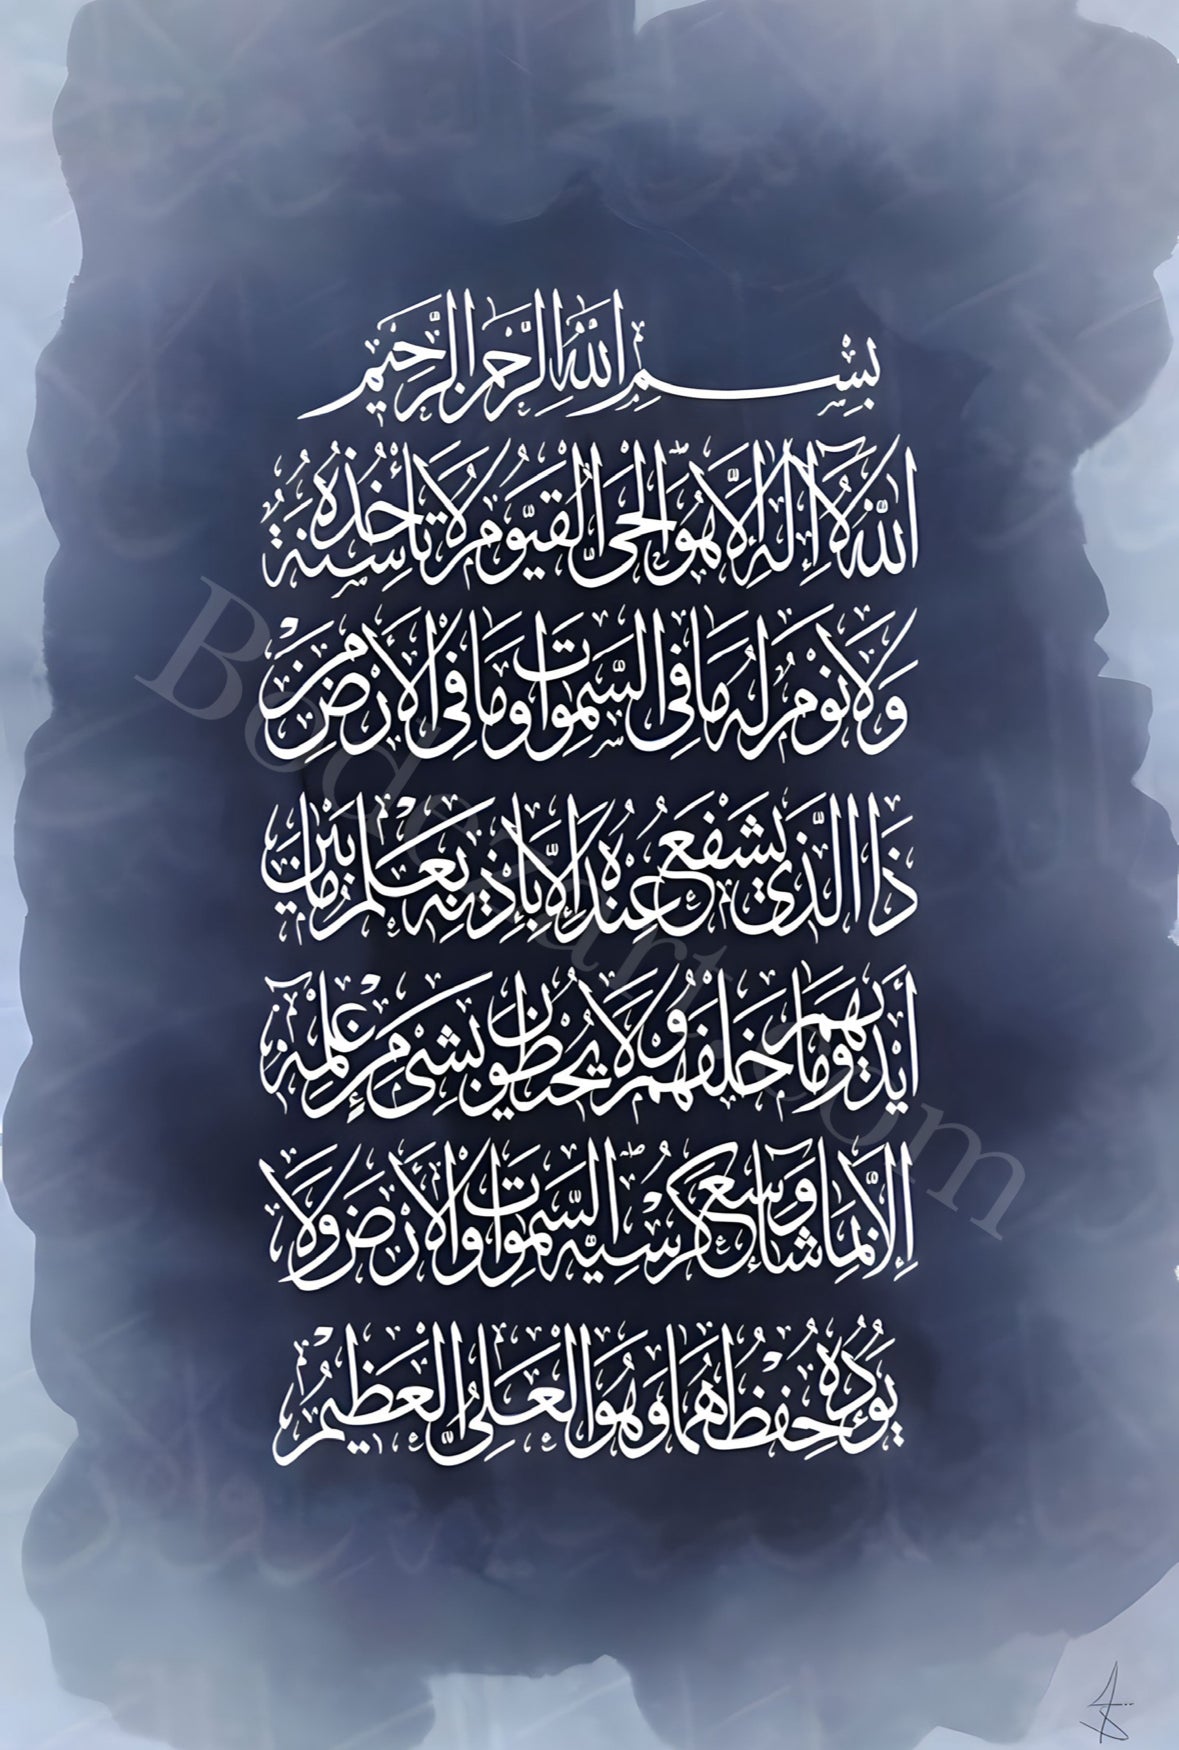 بِسْمِ اللَّهِ الرَّحْمَنِ الرَّحِيمِ
اللَّهُ لَا إِلَهَ إِلَّا هُوَ الْحَيُّ الْقَيُّومُ لَا تَأْخُذُهُ سِنَةٌ
وَلَا نَوْمٌ لَهُ مَا فِي السَّمَوَاتِ وَمَا فِي الْأَرْضِ مَنْ
ذَا الَّذِي يَشْفَعُ عِنْدَهُ إِلَّا بِإِذْنِهِ يَعْلَمُ مَا بَيْنَ
أَيْدِيهِمْ وَمَا خَلْفَهُمْ وَلَا يُحِيطُونَ بِشَيْءٍ مِنْ عِلْمِهِ
إِلَّا بِمَا شَاءَ وَسِعَ كُرْسِيُّهُ السَّمَوَاتِ وَالْأَرْضَ وَلَا
يَئُودُهُ حِفْظُهُمَا وَهُوَ الْعَلِيُّ الْعَظِيمُ
Bodezart.com